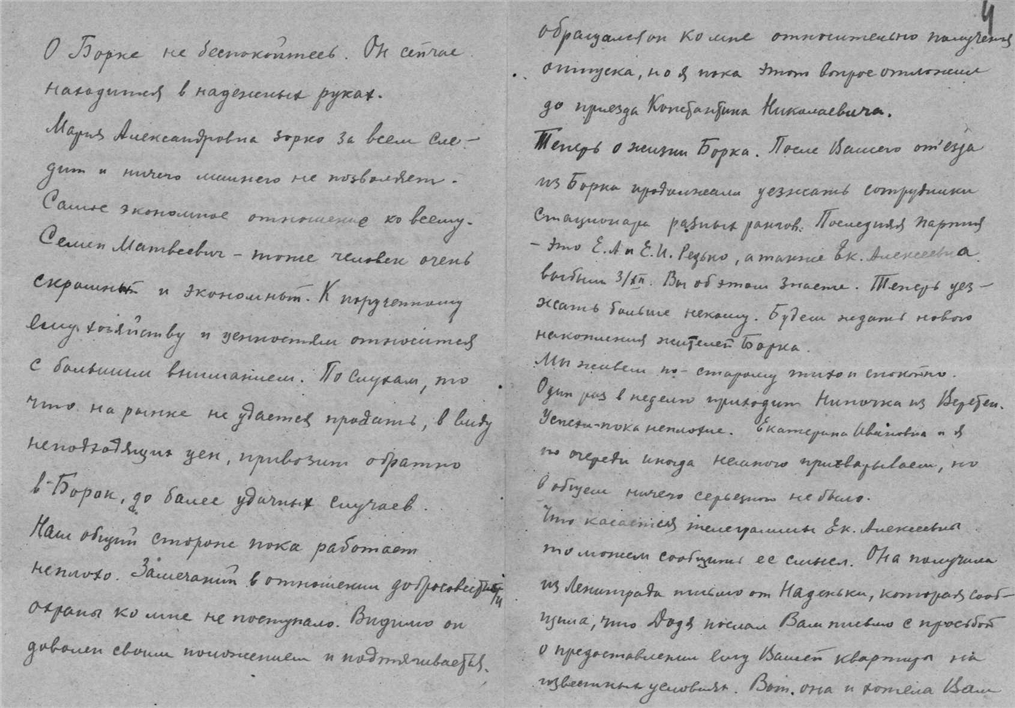 О Борке не беспокойтесь. Он сейчас
находится в надежных руках.
Мария Александровна зорко за всем сле-
дит и ничего лишнего не позволяет.
Самое экономное отношение ко всему.
Семен Матвеевич - тоже человек очень
скромный и экономный. К порученному
ему хозяйству и ценностям относится
с большим вниманием. По слухам, то
что на рынке не удается продать, в виду
неподходящих цен, привозит обратно
в Борок, до более удачных случаев.
Наш общий сторож пока работает
неплохо. Замечаний в отношении добросовестности
охраны ко мне не поступало. Видимо он
доволен своим положением и подтягивается.
4
обращался он ко мне относительно получения
отпуска, но я пока этот вопрос отложил
до приезда Константина Николаевича.
Теперь о жизни Борка. После Вашего от'езда
из Борка продолжали уезжать сотрудники
стационара разных рангов. Последняя партия
- это Е.А и Е.И. Резько, а также Ек. Алексеевна
выбыли 3/XII. Вы об этом знаете. Теперь уез-
жать больше некому. Будем ждать нового
накопления жителей Борка.
Мы живем по-старому тихо и спокойно.
Один раз в неделю приходит Ниночка из Веретеи.
Успехи-пока неплохие. Екатерина Ивановна и я
по очереди иногда немного прихварываем, но
в общем ничего серьезного не было.
Что касается телеграммы Ек. Алексеевны
то можем сообщить ее смысл. Она получила
из Ленинграда письмо от Наденьки, которая сооб-
щила, что Додя послал Вам письмо с просьбой
о предоставлении ему Вашей квартиры на
известных условиях. Вот она и хотела Вам